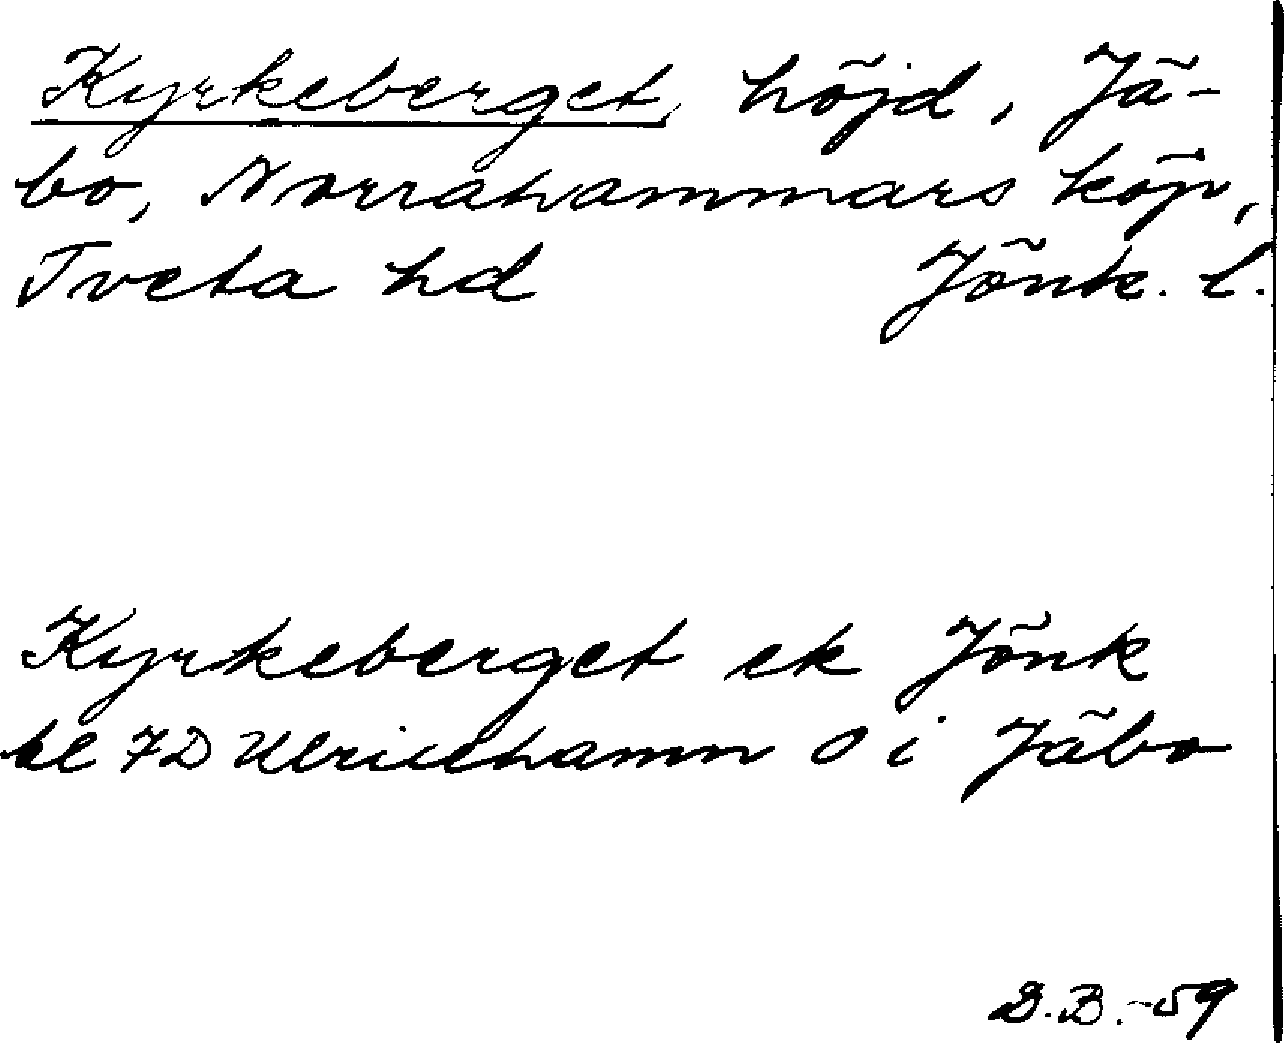 Kyrkeberget, höjd, Jä-
bo, Norrahammars köp,
Tveta hd Jönk. l.
Kyrkeberget ek Jönk
bl 7D Ulricehamn O i Jäbo
D.B.-59